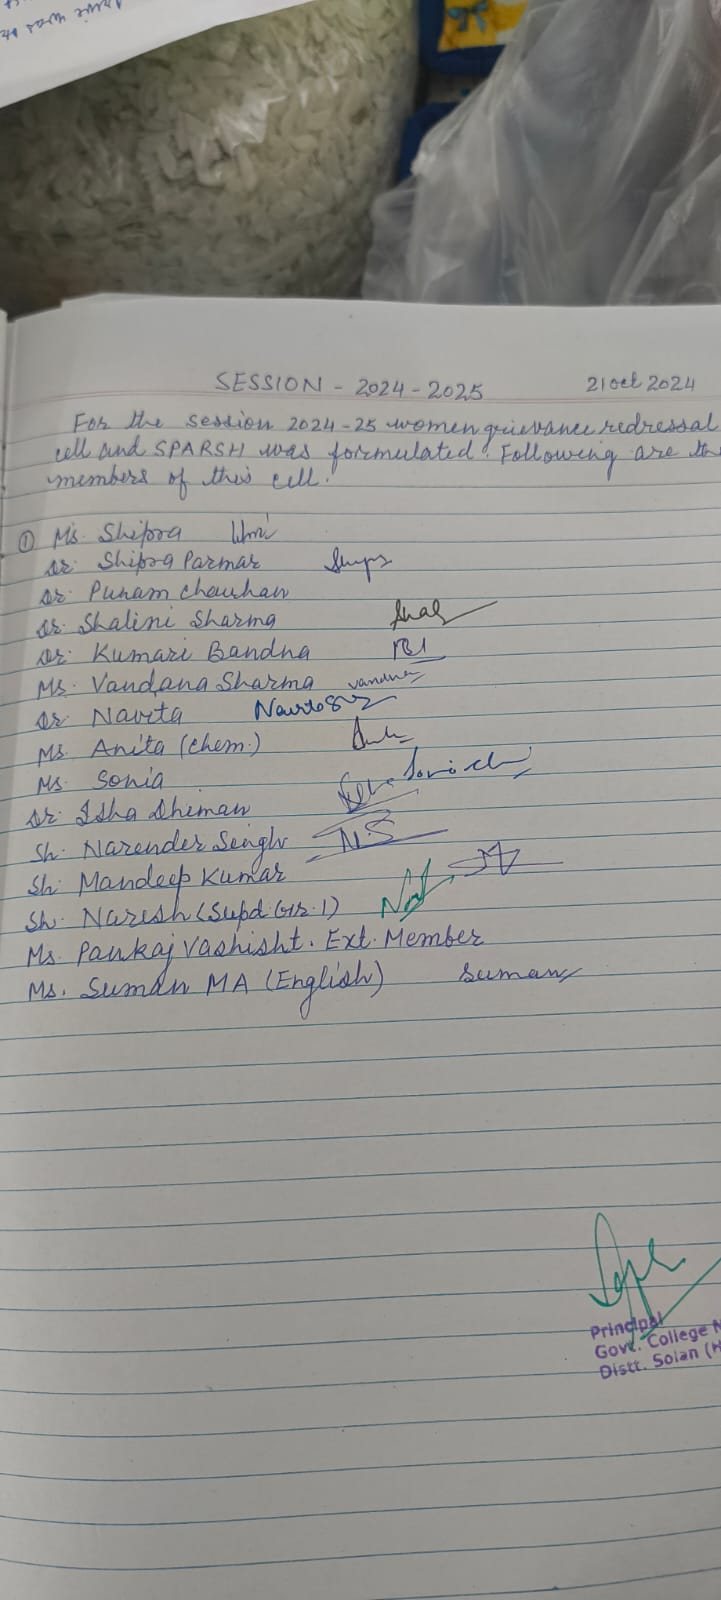 SESSION - 2024-2025 21 oct 2024
For the session 2024-25 women grievance redressal
cell and SPARSH was formulated. Following are the
members of this cell.
① Ms. Shipra
Dr. Shipra Parmar
Dr. Punam Chauhan
Dr. Shalini Sharma
Dr. Kumari Bandna
Ms. Vandana Sharma
Dr. Navita
Ms. Anita (Chem.)
Ms. Sonia
Dr. Isha Dhiman
Sh. Narender Singh N.S
Sh. Mandeep Kumar
Sh. Naresh (Supd. Gr. 1)
Ms. Pankaj Vashisht. Ext. Member
Ms. Suman MA (English) Suman
Principal
Govt. College N
Distt. Solan (H